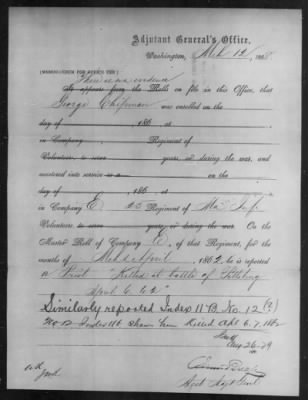 Adjutant General's Office,
Washington, Mch 12, 186
(MEMORANDUM FOR OFFICE USE.)
There is no evidence
It appears from the Rolls on file in this Office, that
George Chipman was enrolled on the
day of , 186 ,
in Company , Regiment of
Volunteers, to serve years, or during the war, and
mustered into service as a on the
day of , 186 ,
in Company E 25 Regiment of Mo Inf
Volunteers, to serve years, or during the war. On the
Muster Roll of Company E, of that Regiment, for the
months of Mch & April, 1862, he is reported
a Privt "Killed at battle of Pittsburg
April 6, 62"
Similarly reported Index 11B No. 12 (?)
No 12 Index 116 shows him Killed Apl 6, 7, 1862
Aug 26-79
Asst Adjt Genl